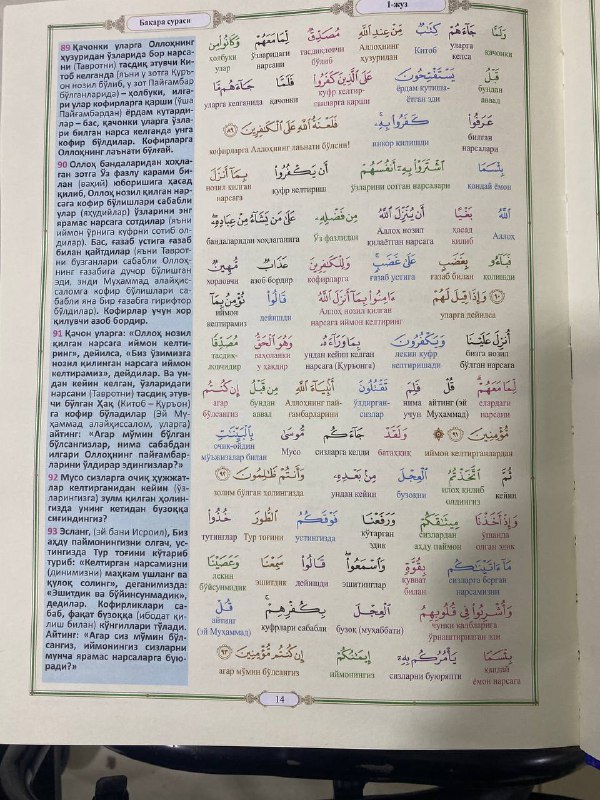 Бақара сураси
1-жуз
89 Қачонки уларга Оллоҳнинг
ҳузуридан уларда бор нарса-
ни (Тавротни) тасдиқ этувчи Ки-
тоб келганда (яъни у зотга Қуръ-
он нозил бўлиб, у зот Пайғамбар
бўлганларида) – ҳолбуки, илга-
ри улар кофирларга қарши (ўша
Пайғамбардан) ёрдам кутарди-
лар – бас, қачонки уларга ўзла-
ри билган нарса келганда унга
кофир бўлдилар. Кофирларга
Оллоҳнинг лаънати бўлгай.
90 Оллоҳ бандаларидан хоҳла-
ган зотга Ўз фазлу карами би-
лан (ваҳий) юборишига ҳасад
қилиб, Оллоҳ нозил қилган нар-
сага кофир бўлишлари сабабли
улар (яҳудийлар) ўзларини энг
ярамас нарсага сотдилар (яъни
иймон ўрнига куфрни сотиб ол-
дилар). Бас, ғазаб устига ғазаб
билан қайтдилар (яъни Таврот-
ни бузганлари сабабли Оллоҳ-
нинг ғазабига дучор бўлишган
эди, энди Муҳаммад алайҳис-
саломга кофир бўлишлари са-
бабли яна бир ғазабга гирифтор
бўлдилар). Кофирлар учун хор
қилувчи азоб бордир.
91 Қачон уларга: «Оллоҳ нозил
қилган нарсага иймон келти-
ринг», дейилса, «Биз ўзимизга
нозил қилинган нарсага иймон
келтирамиз», дейдилар. Ва ун-
дан кейин келган, ўзларидаги
нарсани (Тавротни) тасдиқ этув-
чи бўлган Ҳақ (Китоб – Қуръон)
га кофир бўладилар (Эй Му-
ҳаммад алайҳиссалом, уларга)
айтинг: «Агар мўмин бўлган
бўлсангизлар, нима сабабдан
илгари Оллоҳнинг пайғамбар-
ларини ўлдирар эдингизлар?»
92 Мусо сизларга очиқ ҳужжат-
лар келтирганидан кейин (ўз-
ларингизга) зулм қилган ҳолин-
гизда унинг кетидан бузоққа
сиғиндингиз?
93 Эсланг, (эй бани Исроил), Биз
аҳду паймонингизни олгач, ус-
тингизда Тур тоғини кўтариб
туриб: «Келтирган нарсамизни
(динимизни) маҳкам ушланг ва
қулоқ солинг», деганимизда:
«Эшитдик ва бўйинсунмадик»,
дедилар. Кофирликлари са-
баб, фақат бузоққа (ибодат қи-
лиш билан) кўнгиллари тўлади.
Айтинг: «Агар сиз мўмин бўл-
сангиз, иймонингиз сизларни
мунча ярамас нарсаларга бую-
ради?»
وَلَمَّا جَآءَهُمْ كِتَٰبٌ مِّنْ عِندِ ٱللَّهِ مُصَدِّقٌ لِّمَا مَعَهُمْ وَكَانُوا۟ مِن
қачонки уларга келса Китоб Аллоҳнинг ҳузуридан тасдиқловчи бўлиб ўзларидаги нарсани ҳолбуки улар
قَبْلُ يَسْتَفْتِحُونَ عَلَى ٱلَّذِينَ كَفَرُوا۟ فَلَمَّا جَآءَهُم مَّا
бундан аввал ёрдам кутиша-ётган эди куфр келтир-ганларга қарши қачонки уларга келганида
عَرَفُوا۟ كَفَرُوا۟ بِهِۦ فَلَعْنَةُ ٱللَّهِ عَلَى ٱلْكَٰفِرِينَ ٨٩
билган нарсалари инкор қилишди кофирларга Аллоҳнинг лаънати бўлсин!
بِئْسَمَا ٱشْتَرَوْا۟ بِهِۦٓ أَنفُسَهُمْ أَن يَكْفُرُوا۟ بِمَآ أَنزَلَ
қандай ёмон ўзларини сотган нарсалари куфр келтириш нозил қилган нарсага
ٱللَّهُ بَغْيًا أَن يُنَزِّلَ ٱللَّهُ مِن فَضْلِهِۦ عَلَىٰ مَن يَشَآءُ مِنْ عِبَادِهِۦ
Аллоҳ ҳасад қилиб Аллоҳ нозил қилаётган нарсага Ўз фазлидан бандаларидан хоҳлаганига
فَبَآءُو بِغَضَبٍ عَلَىٰ غَضَبٍ وَلِلْكَٰفِرِينَ عَذَابٌ مُّهِينٌ
қолишди ғазаб билан ғазаб устига кофирларга азоб бордир хорловчи
٩٠ وَإِذَا قِيلَ لَهُمْ ءَامِنُوا۟ بِمَآ أَنزَلَ ٱللَّهُ قَالُوا۟ نُؤْمِنُ بِمَآ
уларга дейилса Аллоҳ нозил қилган нарсага иймон келтиринг дейишди иймон келтирамиз
أُنزِلَ عَلَيْنَا وَيَكْفُرُونَ بِمَا وَرَآءَهُۥ وَهُوَ ٱلْحَقُّ مُصَدِّقًا
бизга нозил бўлган нарсага лекин куфр келтиришади ундан кейин келган нарсага (Қуръонга) ваҳоланки у ҳақдир тасдиқ-ловчидир
لِّمَا مَعَهُمْ قُلْ فَلِمَ تَقْتُلُونَ أَنۢبِيَآءَ ٱللَّهِ مِن قَبْلُ إِن كُنتُم
улардаги нарсани айтинг (эй Муҳаммад) нима учун ўлдирган-сизлар Аллоҳнинг пай-ғамбарларини бундан аввал агар бўлсангиз
مُّؤْمِنِينَ ٩١ وَلَقَدْ جَآءَكُم مُّوسَىٰ بِٱلْبَيِّنَٰتِ
иймон келтирганлардан батаҳқиқ сизларга келди Мусо очиқ-ойдин мўъжизалар билан
ثُمَّ ٱتَّخَذْتُمُ ٱلْعِجْلَ مِنۢ بَعْدِهِۦ وَأَنتُمْ ظَٰلِمُونَ ٩٢
кейин илоҳ қилиб олдингиз бузоқни ундан кейин золим бўлган ҳолингизда
وَإِذْ أَخَذْنَا مِيثَٰقَكُمْ وَرَفَعْنَا فَوْقَكُمُ ٱلطُّورَ خُذُوا۟
ўшанда олган эдик сизлардан аҳду паймон кўтарган эдик устингизда Тур тоғини тутинглар
مَآ ءَاتَيْنَٰكُم بِقُوَّةٍ وَٱسْمَعُوا۟ قَالُوا۟ سَمِعْنَا وَعَصَيْنَا
сизларга берган нарсамизни қувват билан эшитинглар дейишди эшитдик лекин бўйсунмадик
وَأُشْرِبُوا۟ فِى قُلُوبِهِمُ ٱلْعِجْلَ بِكُفْرِهِمْ قُلْ
чунки қалбларига ўрнаштирилган эди бузоқ (муҳаббати) куфрлари сабабли айтинг (эй Муҳаммад)
بِئْسَمَا يَأْمُرُكُم بِهِۦٓ إِيمَٰنُكُمْ إِن كُنتُم مُّؤْمِنِينَ ٩٣
қандай ёмон нарсага сизларни буюряпти иймонингиз агар мўмин бўлсангиз
14